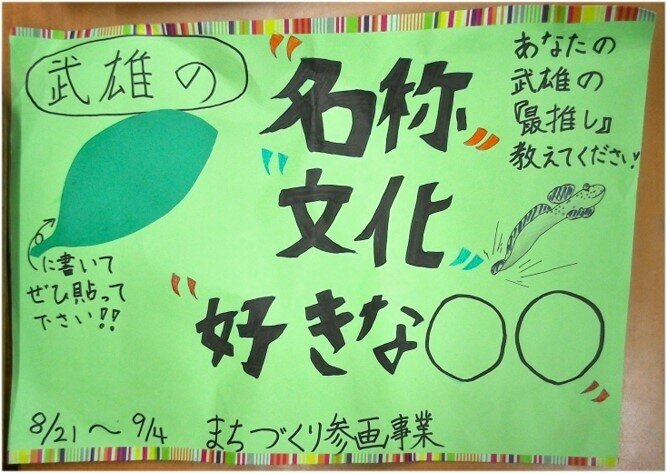 武雄の
"名称"
"文化"
"好きな○○"
あなたの
武雄の
『最推し』
教えてください!
に書いて
ぜひ貼って
下さい!!
8/21～9/4 まちづくり参画事業